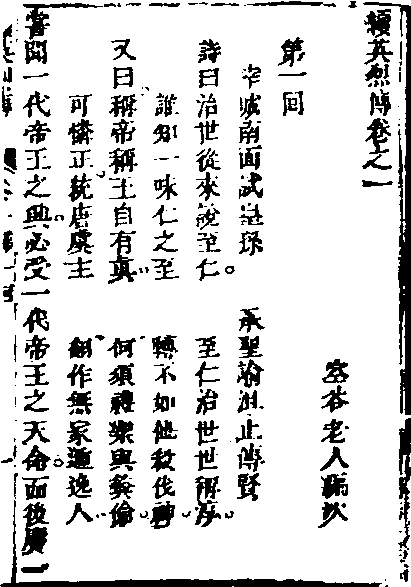 續英烈傳卷之一
空谷老人編次
第一回
幸城南面試皇孫　承聖諭止傳賢
詩曰治世從來說至仁。至仁治世世稱淳。
誰知一味仁之至、轉不如他殺伐神。
又曰稱帝稱王自有真、何須禮樂與彝倫
可憐正統唐虞主　翻作無家遁逸人
嘗聞一代帝王之興必受一代帝王之天命。而後膺一